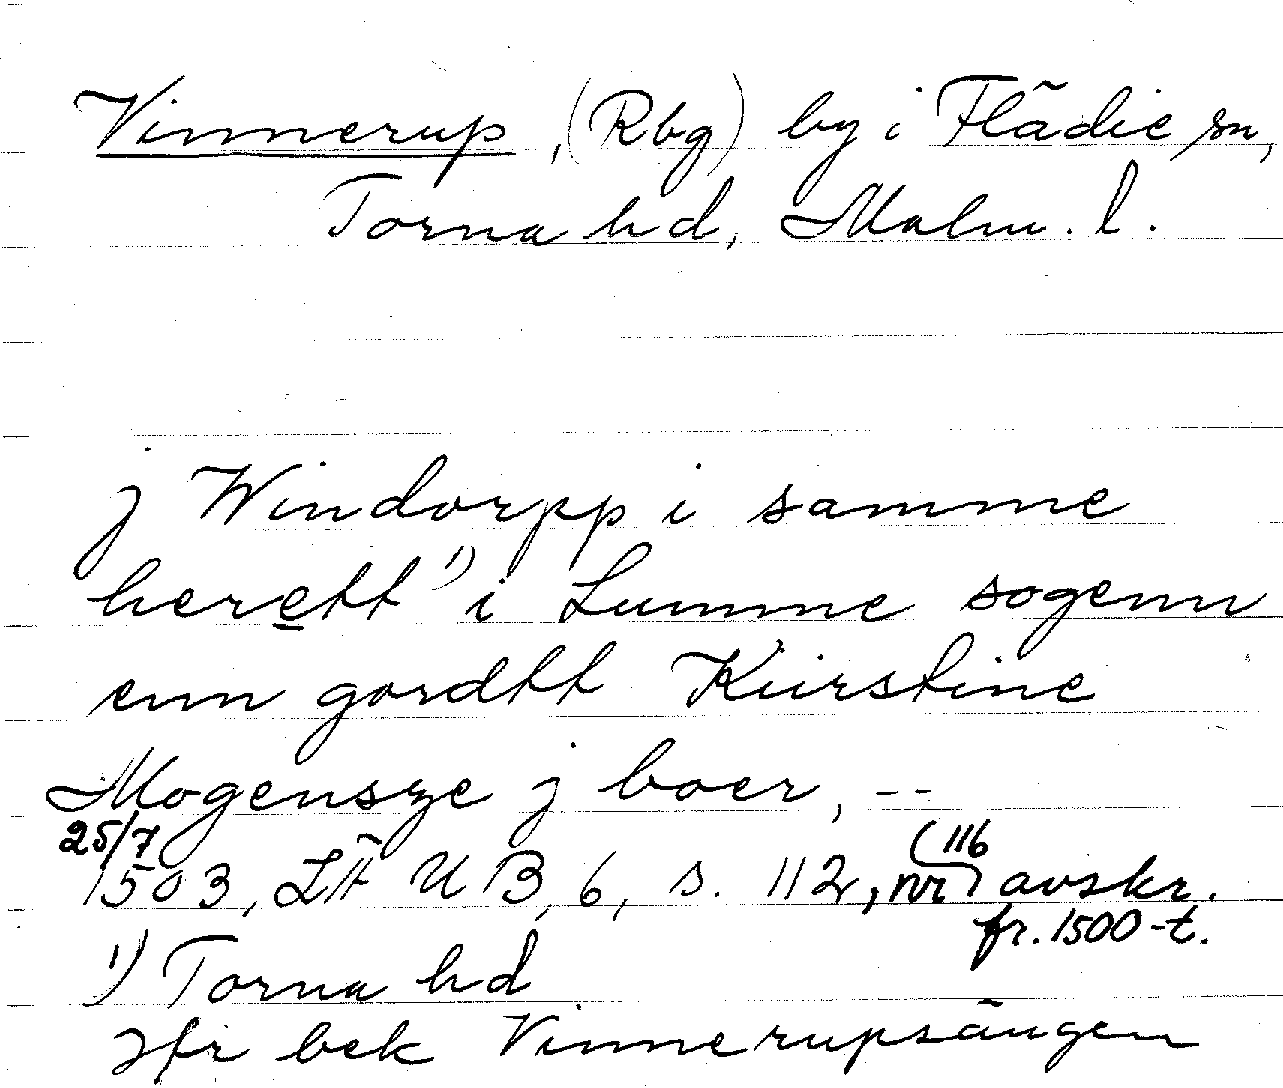 Vinnerup, (Rbg) by i Flädie sn,
Torna hd, Malm. l.
j Windorpp i samme
herett 1) i Lumme sogenn
enn gordtt Kirstine
Mogensze j boer, --
25/7 1503, LÄ UB, 6, s. 112, nr 116 avskr.
fr. 1500-t.
1) Torna hd
Jfr bek Vinnerupsängen